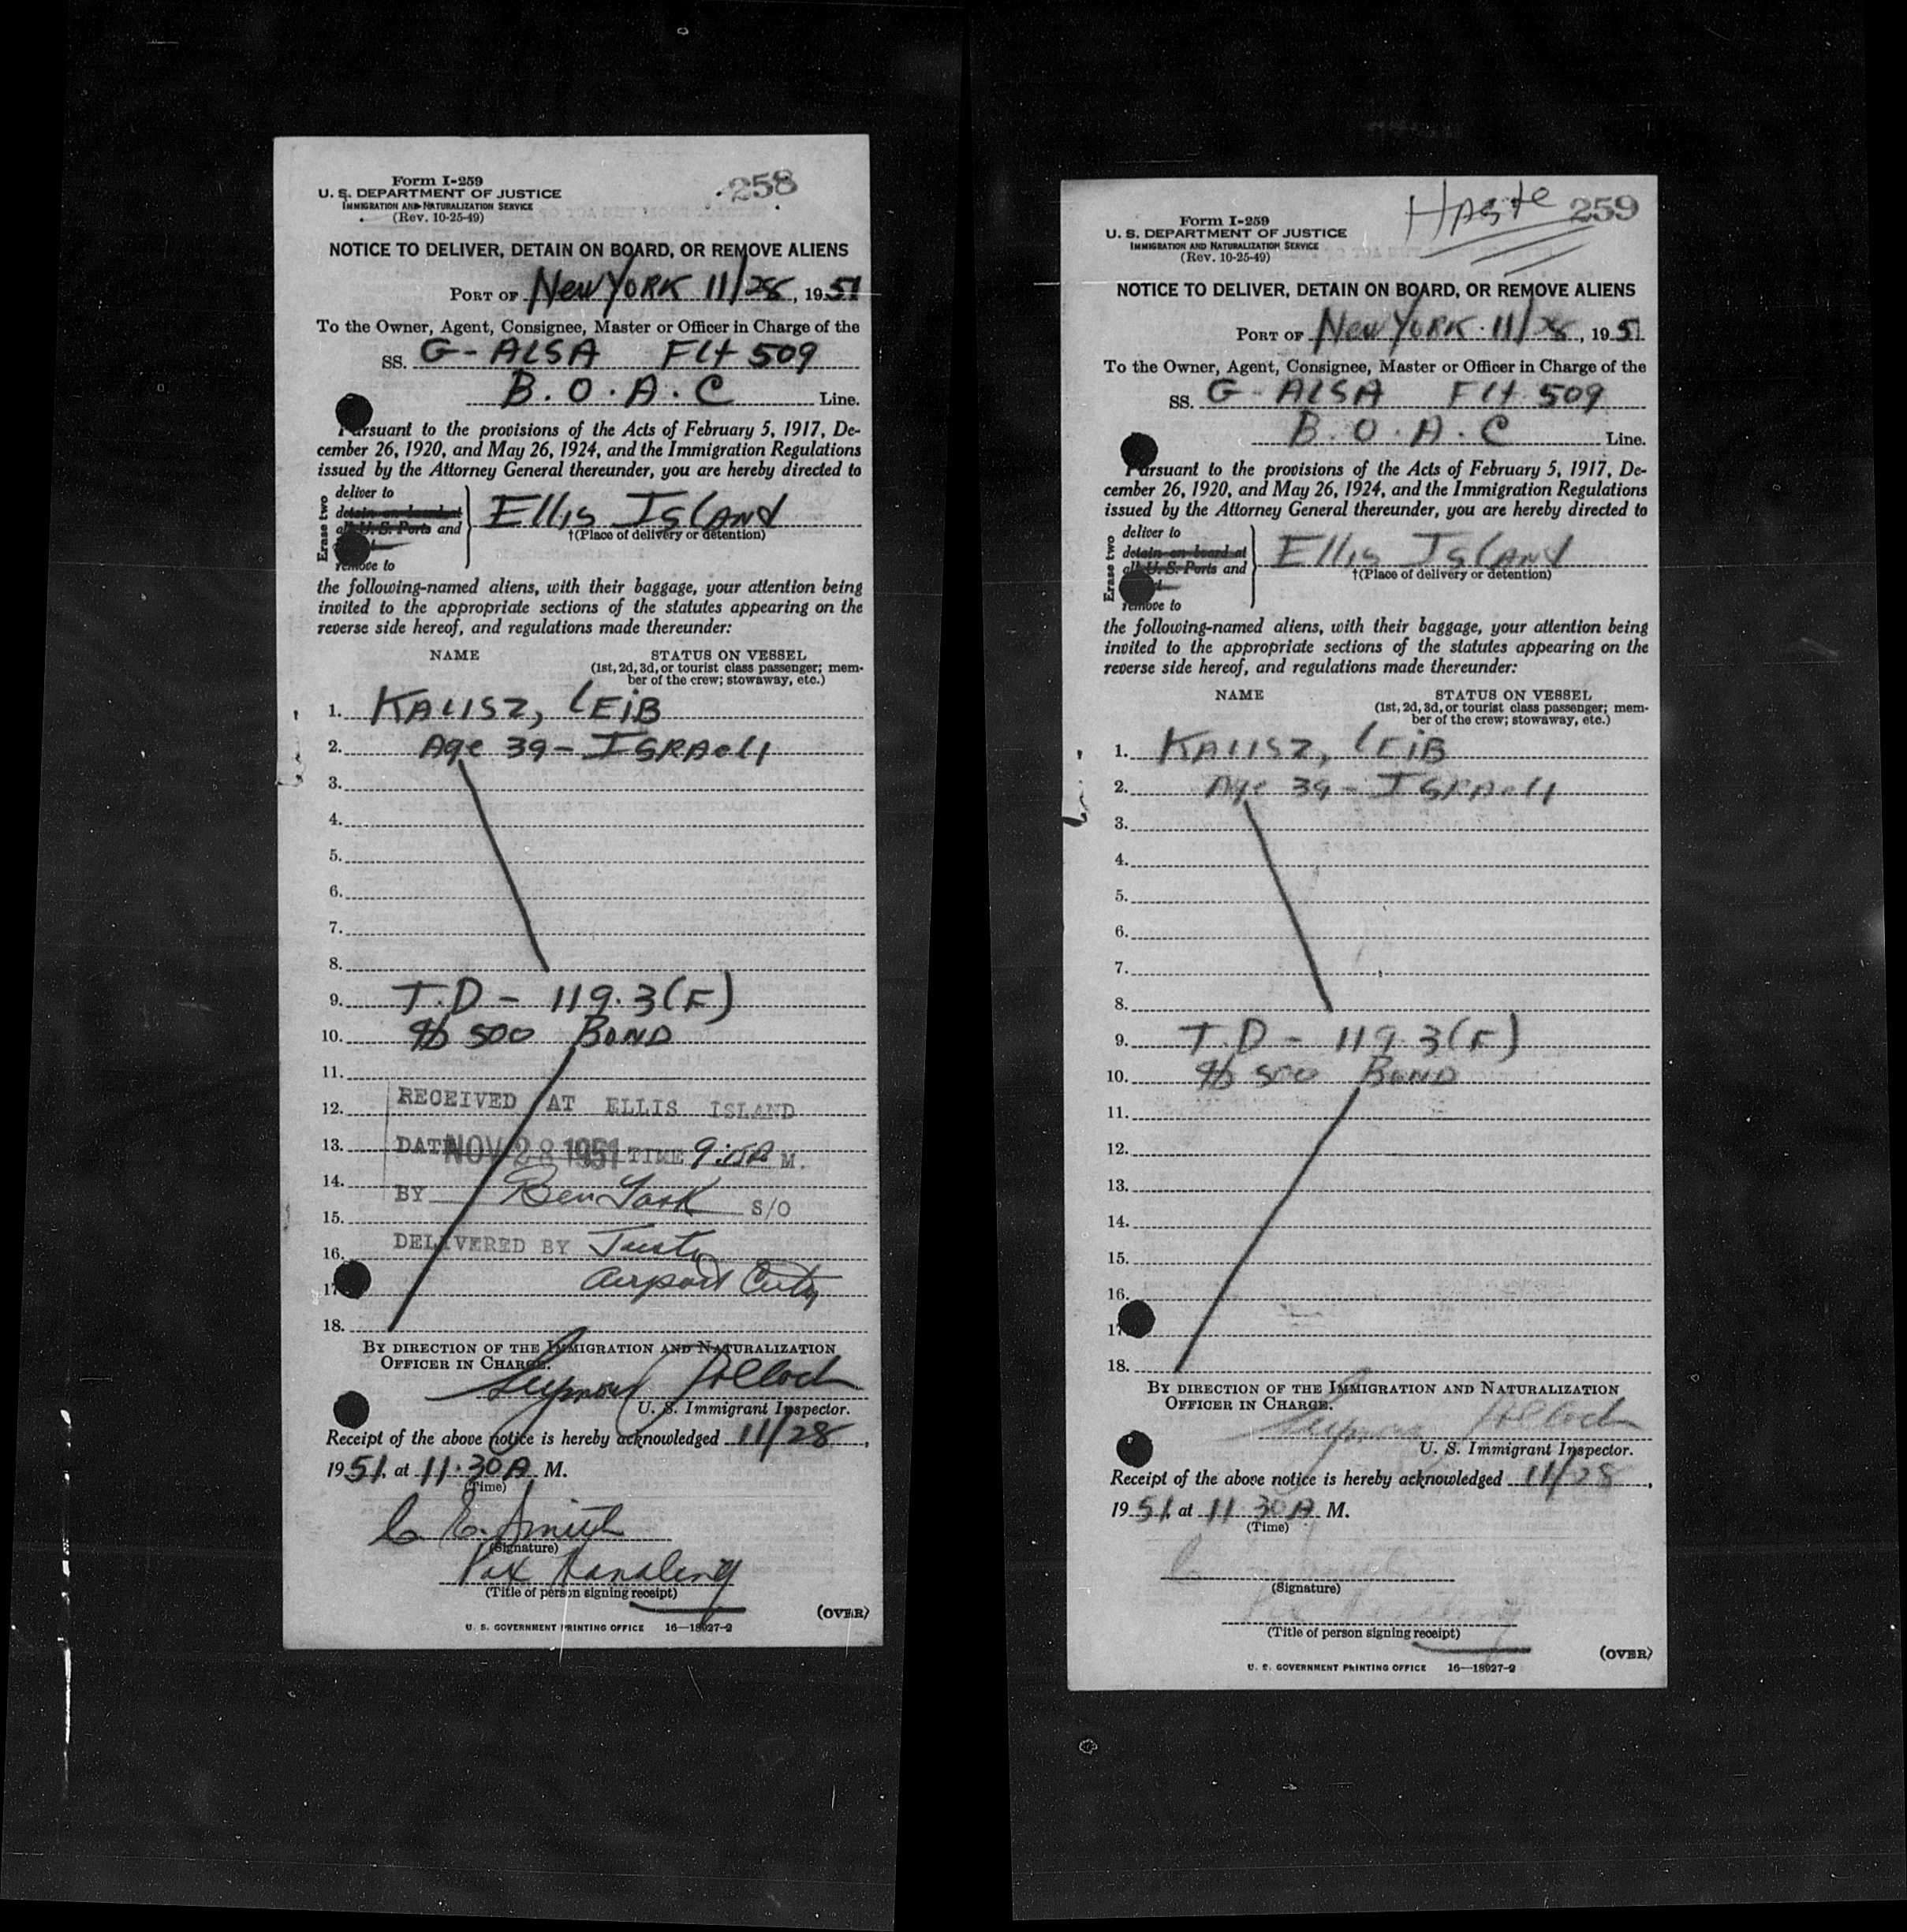 Form I-259
258
U. S. DEPARTMENT OF JUSTICE
IMMIGRATION AND NATURALIZATION SERVICE
(Rev. 10-25-49)
NOTICE TO DELIVER, DETAIN ON BOARD, OR REMOVE ALIENS
PORT OF New YORK 11/28, 1951
To the Owner, Agent, Consignee, Master or Officer in Charge of the
SS. G-ALSA Flt 509
B.O.A.C Line.
Pursuant to the provisions of the Acts of February 5, 1917, De-
cember 26, 1920, and May 26, 1924, and the Immigration Regulations
issued by the Attorney General thereunder, you are hereby directed to
Erase two
deliver to
detain on board at
all U. S. Ports and
remove to
Ellis Island
†(Place of delivery or detention)
the following-named aliens, with their baggage, your attention being
invited to the appropriate sections of the statutes appearing on the
reverse side hereof, and regulations made thereunder:
NAME STATUS ON VESSEL
(1st, 2d, 3d, or tourist class passenger; mem-
ber of the crew; stowaway, etc.)
1. KALISZ, LEiB
2. Age 39 - ISRAeli
3.
4.
5.
6.
7.
8.
9. T.D - 119.3(F)
10. $500 BOND
11.
12. RECEIVED AT ELLIS ISLAND
13. DATE NOV 28 1951 TIME 9:15A M.
14. BY Ben York S/O
15.
16. DELIVERED BY
17. Airport
18.
BY DIRECTION OF THE IMMIGRATION AND NATURALIZATION
OFFICER IN CHARGE.
Seymour Pollock
U. S. Immigrant Inspector.
Receipt of the above notice is hereby acknowledged 11/28,
1951, at 11.30A M.
(Time)
C. E. Smith
(Signature)
Pax Handling
(Title of person signing receipt)
(OVER)
U. S. GOVERNMENT PRINTING OFFICE 16—18927-2
Haste 259
Form I-259
U. S. DEPARTMENT OF JUSTICE
IMMIGRATION AND NATURALIZATION SERVICE
(Rev. 10-25-49)
NOTICE TO DELIVER, DETAIN ON BOARD, OR REMOVE ALIENS
PORT OF New YORK 11/28, 1951
To the Owner, Agent, Consignee, Master or Officer in Charge of the
SS. G-ALSA Flt 509
B.O.A.C Line.
Pursuant to the provisions of the Acts of February 5, 1917, De-
cember 26, 1920, and May 26, 1924, and the Immigration Regulations
issued by the Attorney General thereunder, you are hereby directed to
Erase two
deliver to
detain on board at
all U. S. Ports and
remove to
Ellis Island
†(Place of delivery or detention)
the following-named aliens, with their baggage, your attention being
invited to the appropriate sections of the statutes appearing on the
reverse side hereof, and regulations made thereunder:
NAME STATUS ON VESSEL
(1st, 2d, 3d, or tourist class passenger; mem-
ber of the crew; stowaway, etc.)
1. KALISZ, LEiB
2. Age 39 - ISRAeli
3.
4.
5.
6.
7.
8.
9. T.D - 119.3(F)
10. $500 BOND
11.
12.
13.
14.
15.
16.
17.
18.
BY DIRECTION OF THE IMMIGRATION AND NATURALIZATION
OFFICER IN CHARGE.
Seymour Pollock
U. S. Immigrant Inspector.
Receipt of the above notice is hereby acknowledged 11/28,
1951, at 11 30A M.
(Time)
C. E. Smith
(Signature)
Pax Handling
(Title of person signing receipt)
(OVER)
U. S. GOVERNMENT PRINTING OFFICE 16—18927-2